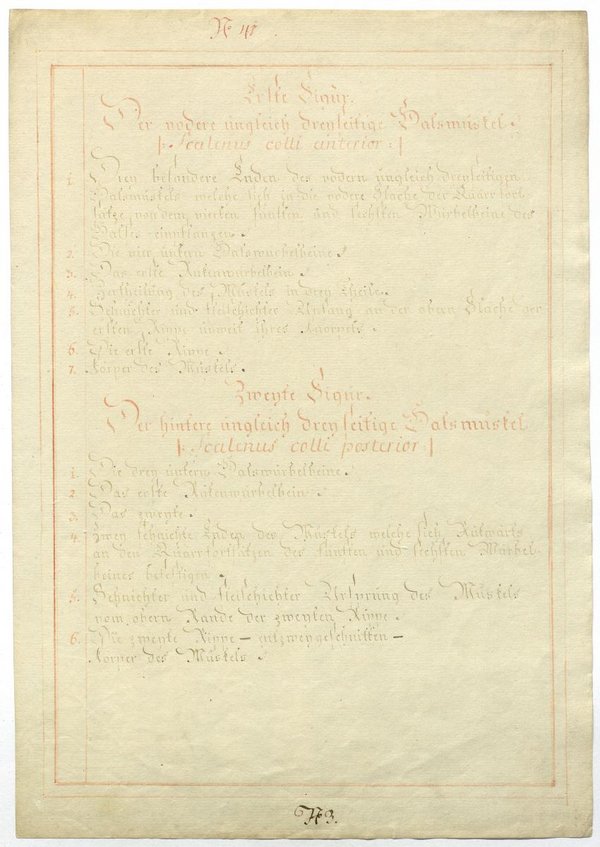 № 41.
Erste Figur.
Der vodere ungleich dreyseitige Halsmuskel.
|: Scalenus colli anterior :|
1. besondere Enden des vodern ungleich dreyseitigen
Halsmuskels welche sich in die vodere Fläche der Quärfort
sätze von dem vierten fünften und sechsten Würbelbeine des
Halses einpflanzen.
2. Die vier untern Halswürbelbeine.
3. Das erste Rükenwürbelbein.
4. Zertheilung des Muskels in drey Theile.
5. Sehnichter und fleischichter Anfang an der obern Fläche der
ersten Rippe unweit ihres Knorpels.
6. Die erste Rippe.
7. Körper des Muskels.
Zweyte Figur.
Der hintere ungleich dreyseitige Halsmuskel
|: Scalenus colli posterior :|
1. Die drey untern Halswürbelbeine.
2. Das erste Rükenwürbelbein.
3. Das zweyte.
4. Zwey sehnichte Enden des Muskels welche sich Rükwärts
an den Quärfortsätzen des fünften und sechsten Würbel-
beines befestigen.
5. Sehnichter und fleischichter Ursprung des Muskels
vom obern Rande der zweyten Rippe.
6. Die zweyte Rippe – entzweygeschnitten –
Körper des Muskels.